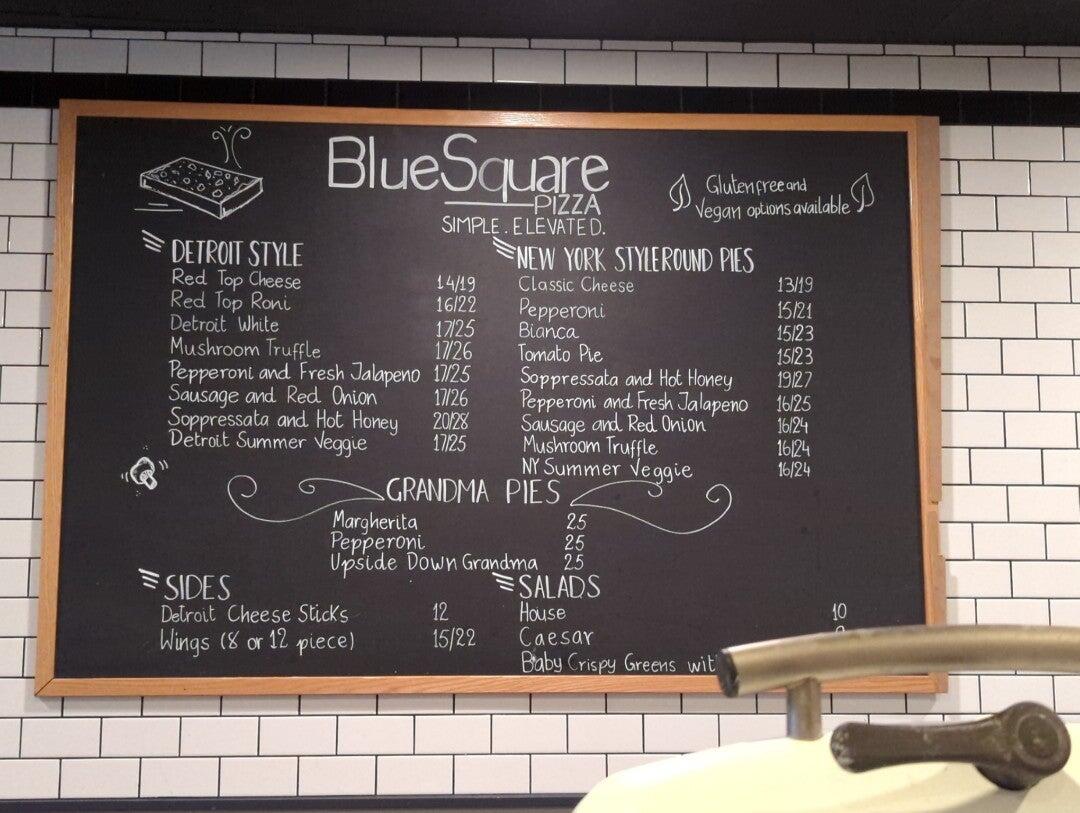 BlueSquare
PIZZA
SIMPLE. ELEVATED.
Gluten free and
Vegan options available
DETROIT STYLE
Red Top Cheese 14/19
Red Top Roni 16/22
Detroit White 17/25
Mushroom Truffle 17/26
Pepperoni and Fresh Jalapeno 17/25
Sausage and Red Onion 17/26
Soppressata and Hot Honey 20/28
Detroit Summer Veggie 17/25
NEW YORK STYLE ROUND PIES
Classic Cheese 13/19
Pepperoni 15/21
Bianca 15/23
Tomato Pie 15/23
Soppressata and Hot Honey 19/27
Pepperoni and Fresh Jalapeno 16/25
Sausage and Red Onion 16/24
Mushroom Truffle 16/24
NY Summer Veggie 16/24
GRANDMA PIES
Margherita 25
Pepperoni 25
Upside Down Grandma 25
SIDES
Detroit Cheese Sticks 12
Wings (8 or 12 piece) 15/22
SALADS
House 10
Caesar
Baby Crispy Greens